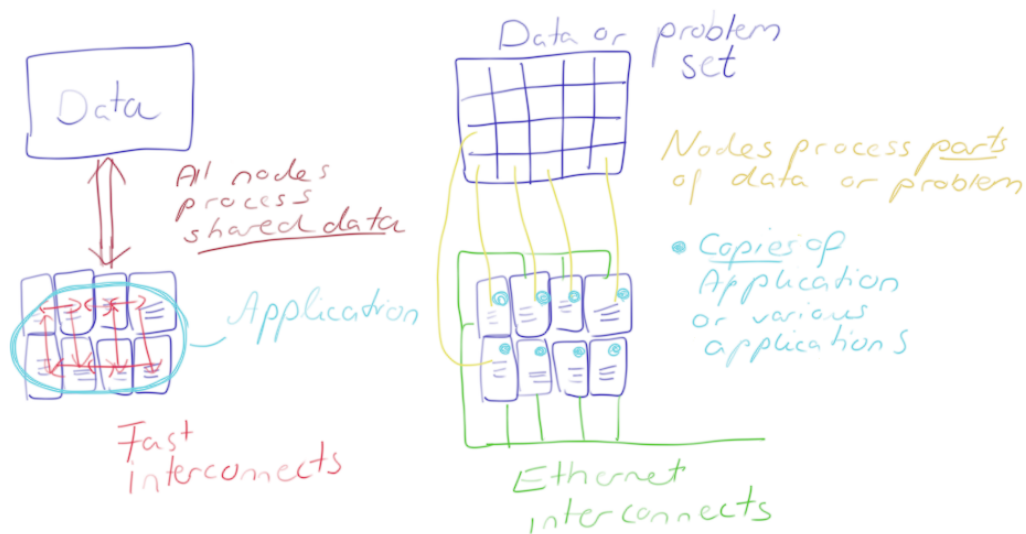 Data
All nodes
process
shared data
Application
Fast
interconnects
Data or problem
set
Nodes process parts
of data or problem
Copies of
Application
or various
applications
Ethernet
interconnects